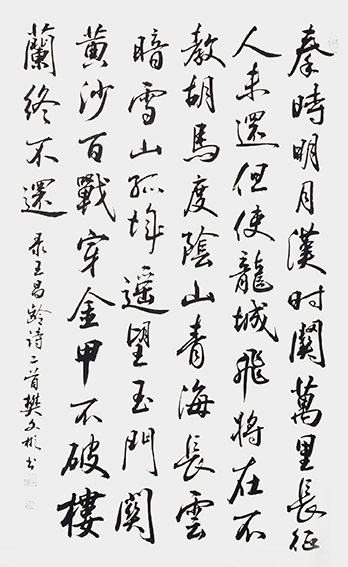 秦時明月漢时關萬里長征
人未還但使龍城飛將在不
教胡馬度陰山青海長雲
暗雪山孤城遥望玉門關
黄沙百戰穿金甲不破樓
蘭终不還
录王昌龄诗二首樊文彬书